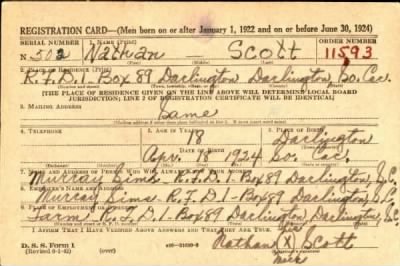 REGISTRATION CARD—(Men born on or after January 1, 1922 and on or before June 30, 1924)
SERIAL NUMBER 1. NAME (Print) ORDER NUMBER
N 502 Nathan Scott 11593
(First) (Middle) (Last)
2. PLACE OF RESIDENCE (Print)
R.F.D.1-Box 89 Darlington Darlington, So. Car.
(Number and street) (Town, township, village, or city) (County) (State)
[THE PLACE OF RESIDENCE GIVEN ON THE LINE ABOVE WILL DETERMINE LOCAL BOARD
JURISDICTION; LINE 2 OF REGISTRATION CERTIFICATE WILL BE IDENTICAL]
3. MAILING ADDRESS
Same
4. TELEPHONE 5. AGE IN YEARS 6. PLACE OF BIRTH
18 Darlington
DATE OF BIRTH
Apr. 18 1924 So. C.
7. NAME AND ADDRESS OF PERSON WHO WILL ALWAYS KNOW YOUR ADDRESS
Murray Sims-R.F.D.1-Box 89 Darlington, S.C.
8. EMPLOYER'S NAME AND ADDRESS
Murray Sims-R.F.D.1-Box 89 Darlington, S.C.
9. PLACE OF EMPLOYMENT OR BUSINESS
Farm R.F.D.1-Box 89 Darlington, Darlington, S.C.
I AFFIRM THAT I HAVE VERIFIED ABOVE ANSWERS AND THAT THEY ARE TRUE.
his
D. S. S. Form 1 Nathan (X) Scott
(Revised 6-1-42) mark